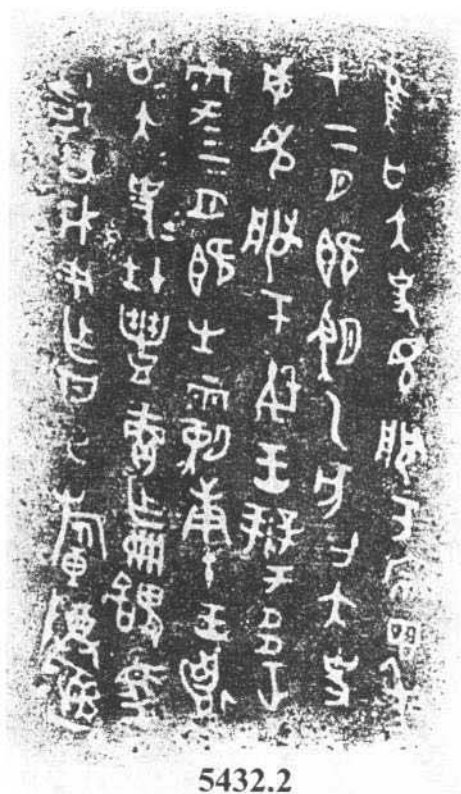 隹公大史見服于宗周年
才二月既望乙亥公大史
咸見服于辟王辨于多正
雩四月既生霸庚午王遣
公=大=史=才豐賞乍冊䰧馬
揚公休用乍日己旅尊彝
5432.2